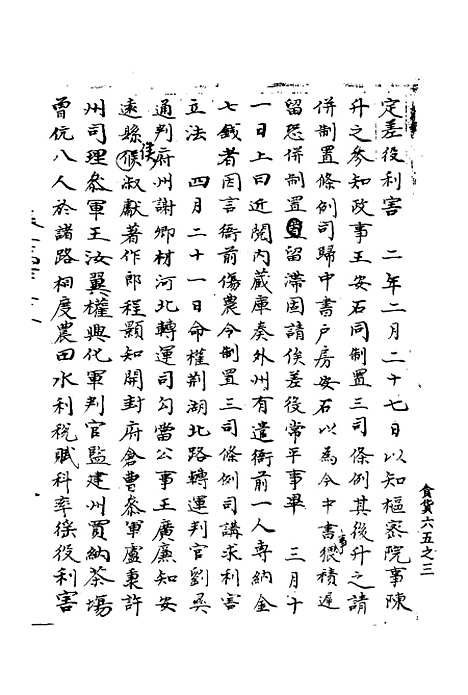 食貨六五之三
定差役利害　二年二月二十七日以知樞密院事陳
升之參知政事王安石同制置三司條例其後升之請
併制置條例司歸中書户房安石以爲今中書猥積遲
事
留恐併制置留滯固請俟差役常平事畢　三月十
一日上曰近閱内藏庫奏外州有遣衙前一人專納金
七錢者因言衙前傷農令制置三司條例司講求利害
立法　四月二十一日命權荆湖北路轉運判官劉彝
通判府州謝卿材河北轉運司勾當公事王廣廉知安
遠縣候叔獻著作郎程顥知開封府倉曹叅軍盧秉許
侯
州司理叅軍王汝翼權興化軍判官監建州買納茶塲
曾伉八人於諸路相度農田水利稅賦科率徭役利害